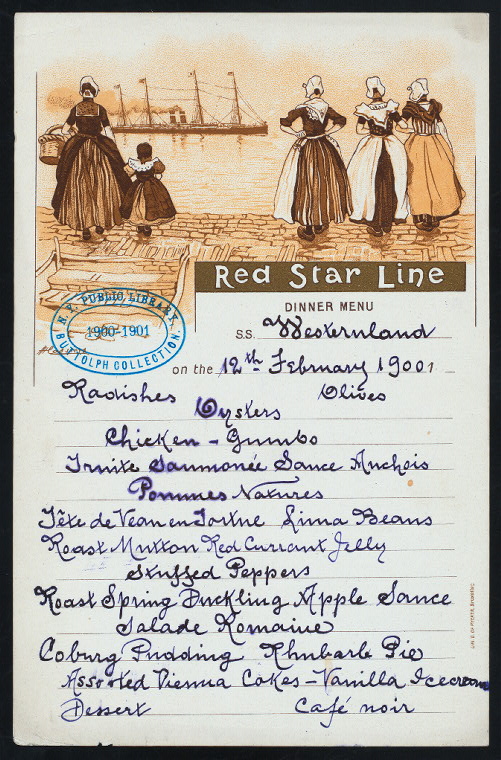 Red Star Line
DINNER MENU
S.S. Westernland
on the 12th February 1900 1
N.Y. PUBLIC LIBRARY
1900-1901
BUTTOLPH COLLECTION
Radishes Olives
Oysters
Chicken - Gumbo
Truite Saumonée Sauce Anchois
Pommes Natures
Tête de Veau en Tortue Lima Beans
Roast Mutton Red Currant Jelly
Stuffed Peppers
Roast Spring Duckling Apple Sauce
Salade Romaine
Coburg Pudding Rhubarb Pie
Assorted Vienna Cakes - Vanilla Icecream
Dessert Café noir